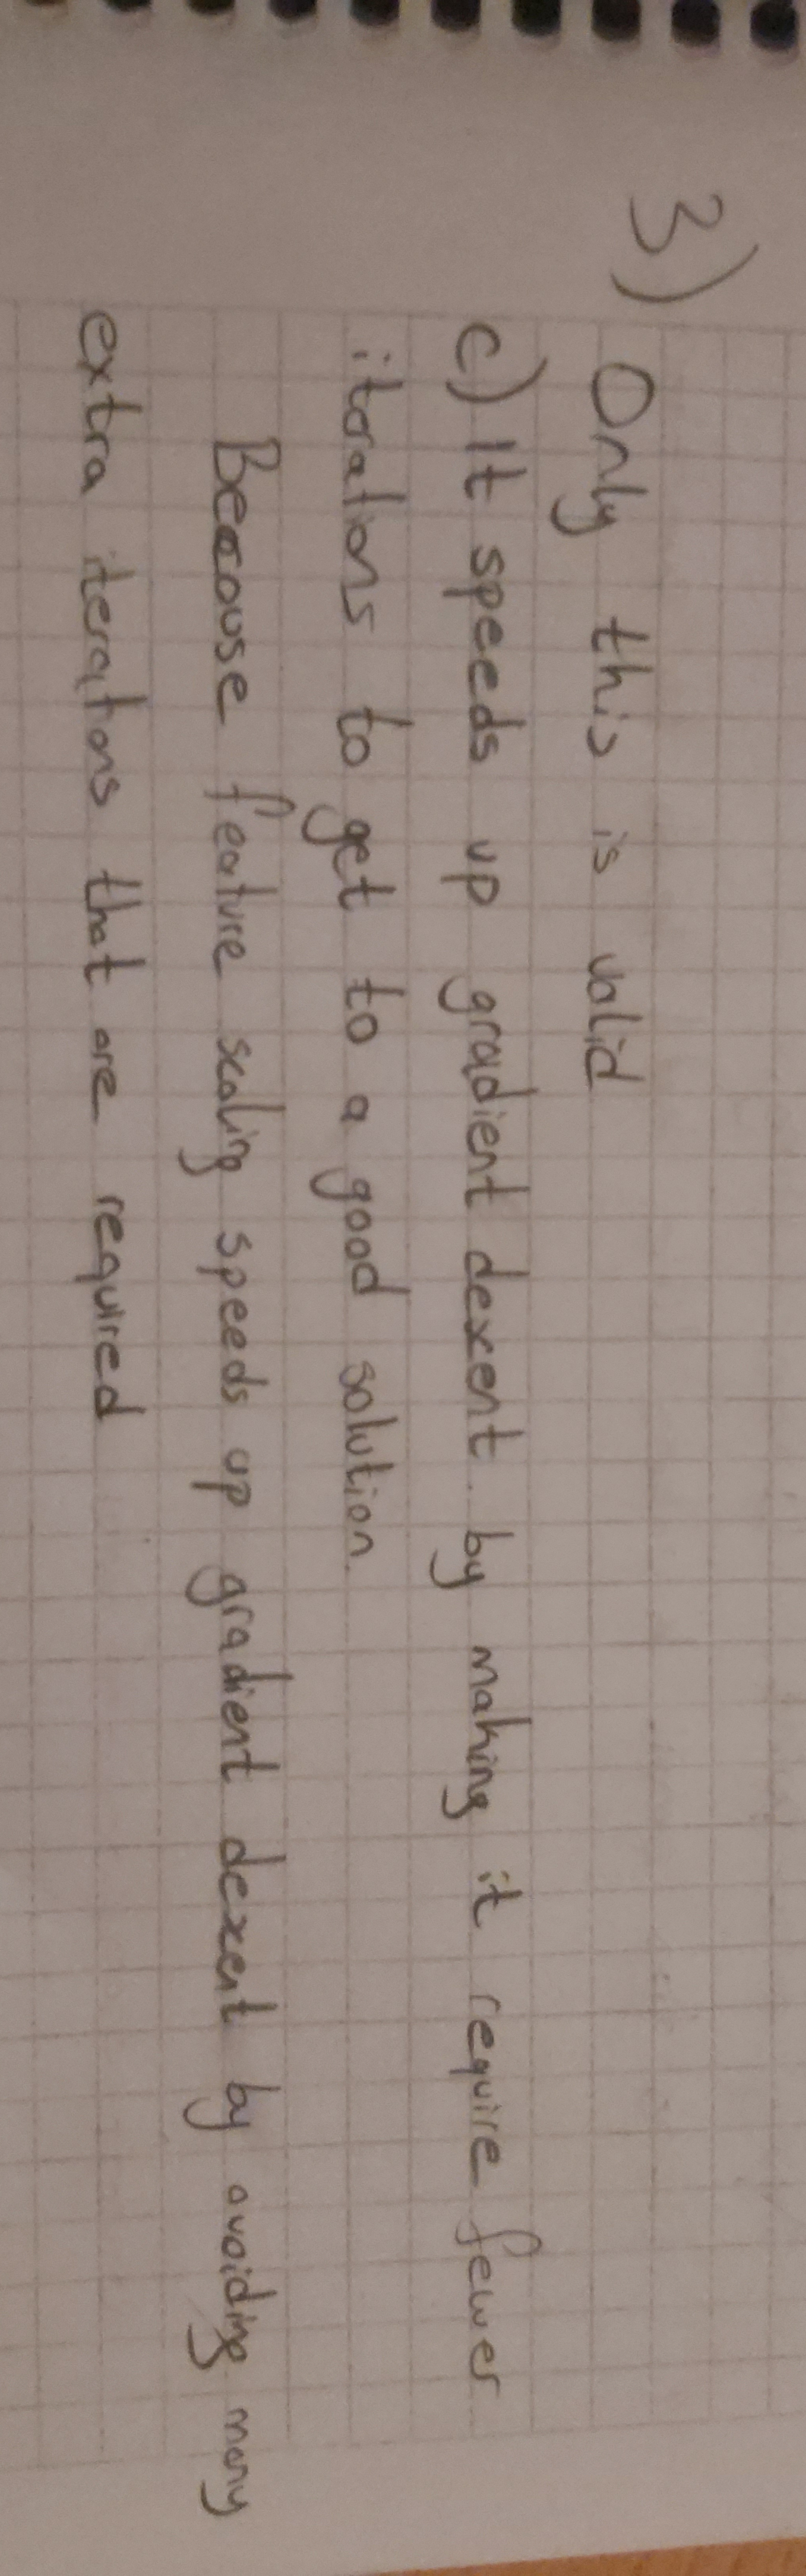 3)
Only this is valid
c) It speeds up gradient dexent by making it require fewer
iterations to get to a good solution.
Because feature scaling speeds up gradient dexent by avoiding many
extra iterations that are required